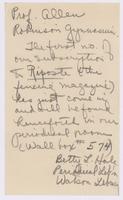 Prof. Allen
Robinson Gymnasium
The first no. of
our subscription
to Riposte (the
fencing magazine)
has just come in
and will be found
henceforth in our
periodical room
(Wall box no. 574)
Betty L. Hale
Periodical Dept.
Watson Library